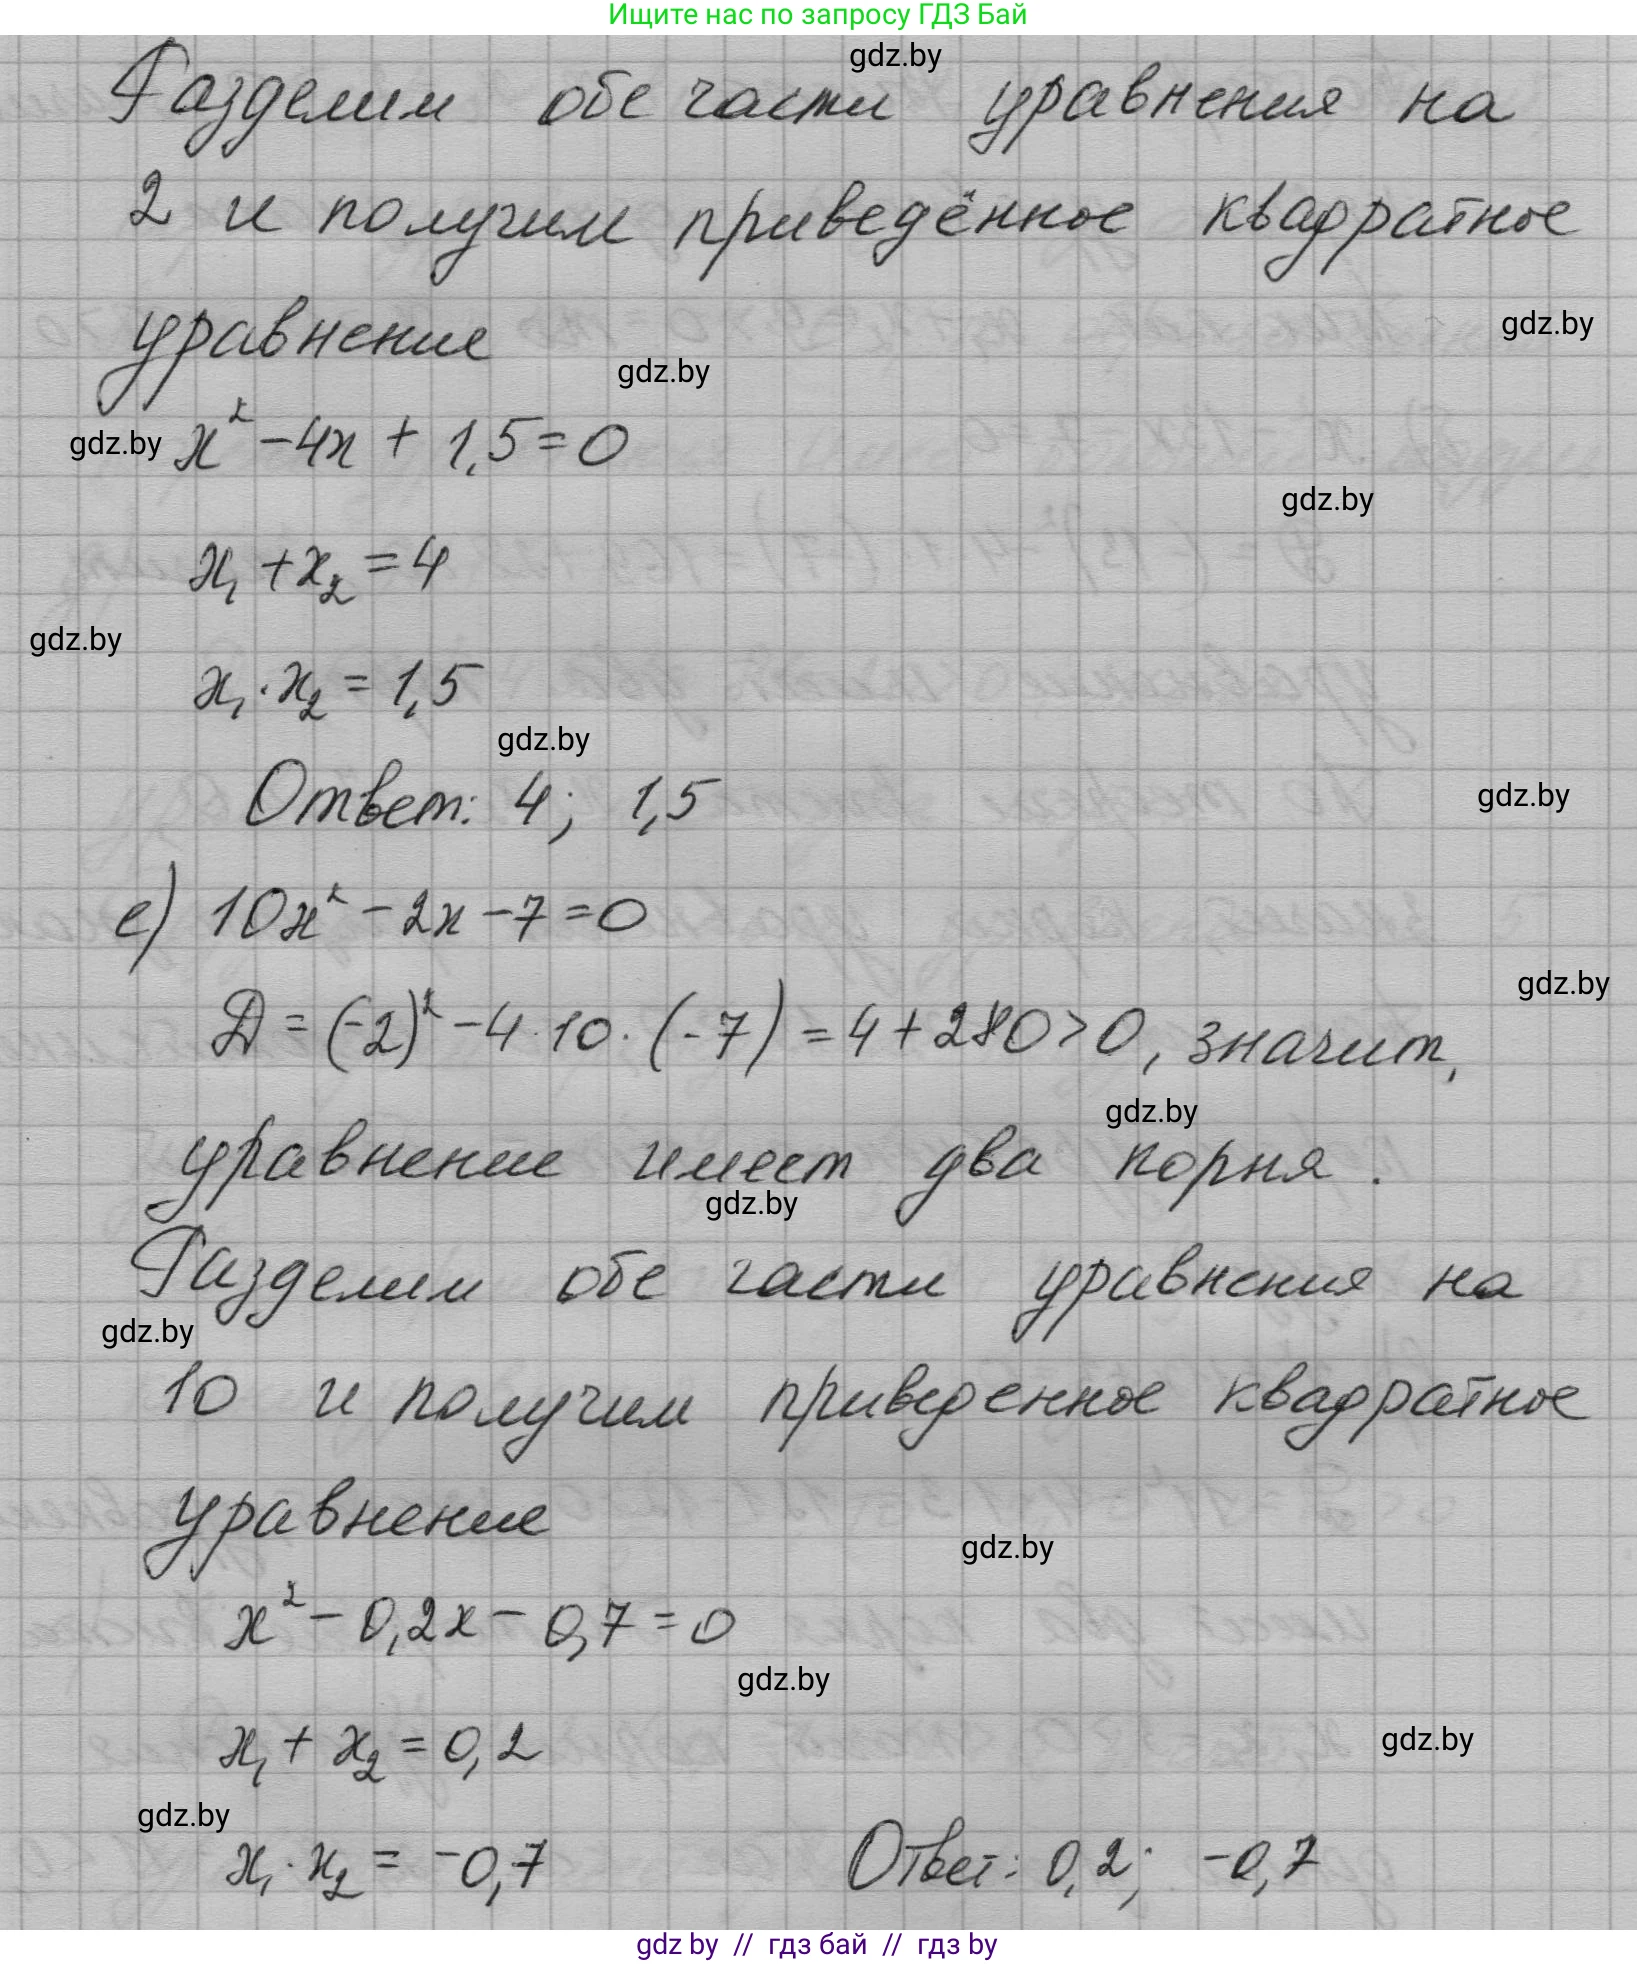 Ищите нас по запросу ГДЗ Бай
gdz.by
Разделим обе части уравнения на
2 и получим приведённое квадратное
gdz.by
уравнение
gdz.by
gdz.by
x² - 4x + 1,5 = 0
gdz.by
x₁ + x₂ = 4
gdz.by
x₁ · x₂ = 1,5
gdz.by
Ответ: 4; 1,5
gdz.by
е) 10x² - 2x - 7 = 0
gdz.by
Д = (-2)² - 4 · 10 · (-7) = 4 + 280 > 0, значит,
gdz.by
уравнение имеет два корня.
gdz.by
Разделим обе части уравнения на
gdz.by
10 и получим приведенное квадратное
уравнение
gdz.by
x² - 0,2x - 0,7 = 0
gdz.by
x₁ + x₂ = 0,2
gdz.by
gdz.by
x₁ · x₂ = -0,7 Ответ: 0,2; -0,7
gdz by // гдз бай // гдз by